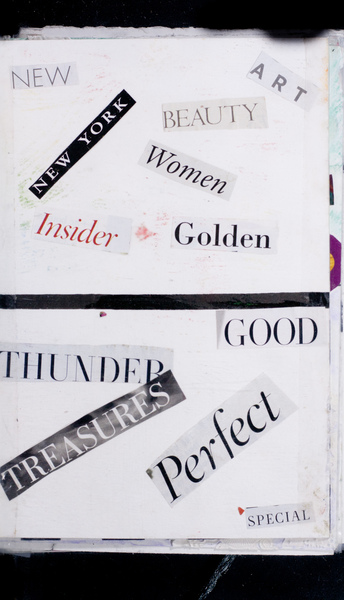 NEW
ART
NEW YORK
BEAUTY
Women
Insider
Golden
GOOD
THUNDER
TREASURES
Perfect
SPECIAL